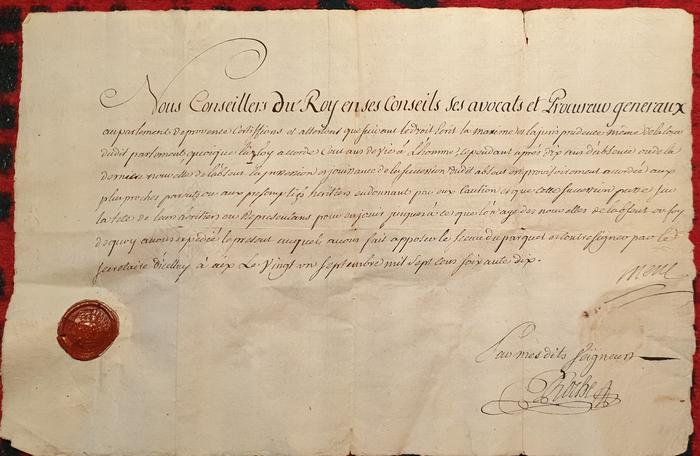 Nous Conseillers du Roy en ses Conseils ses avocats et Procureur generaux
au parlement de provence Certiffions et attestons que suivant le droit Ecrit la maxime et la jurisprudence même de la Cour
dudit parlement quoique la Loy accorde Cent ans de vie à L'homme, cependant après dix ans d'absence ou de la
derniere nouvelle de l'absent la possession et jouissance de la succession dudit absent est provisoirement accordée aux
plus proches parents ou aux presomptifs heritiers en donnant par eux Caution et que cette succession passe sur
la tete de leurs heritiers ou Representans pour en jouir jusques à ce que l'on aye des nouvelles de l'absent en foy
de quoy avons expédié le present auquel avons fait apposer le sceau du parquet et contresigner par le
secretaire d'icelluy à aix Le Vingt un septembre mil sept cens soixante dix.
Par mesdits seigneurs